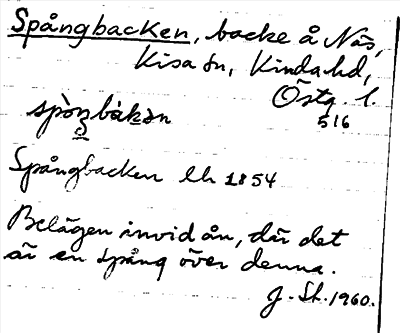 Spångbacken, backe å Näs,
Kisa sn, Kinda hd,
Östg. l.
516
Spångbacken lh 1854
Belägen invid ån, där det
är en spång över denna.
J. Sh. 1960.